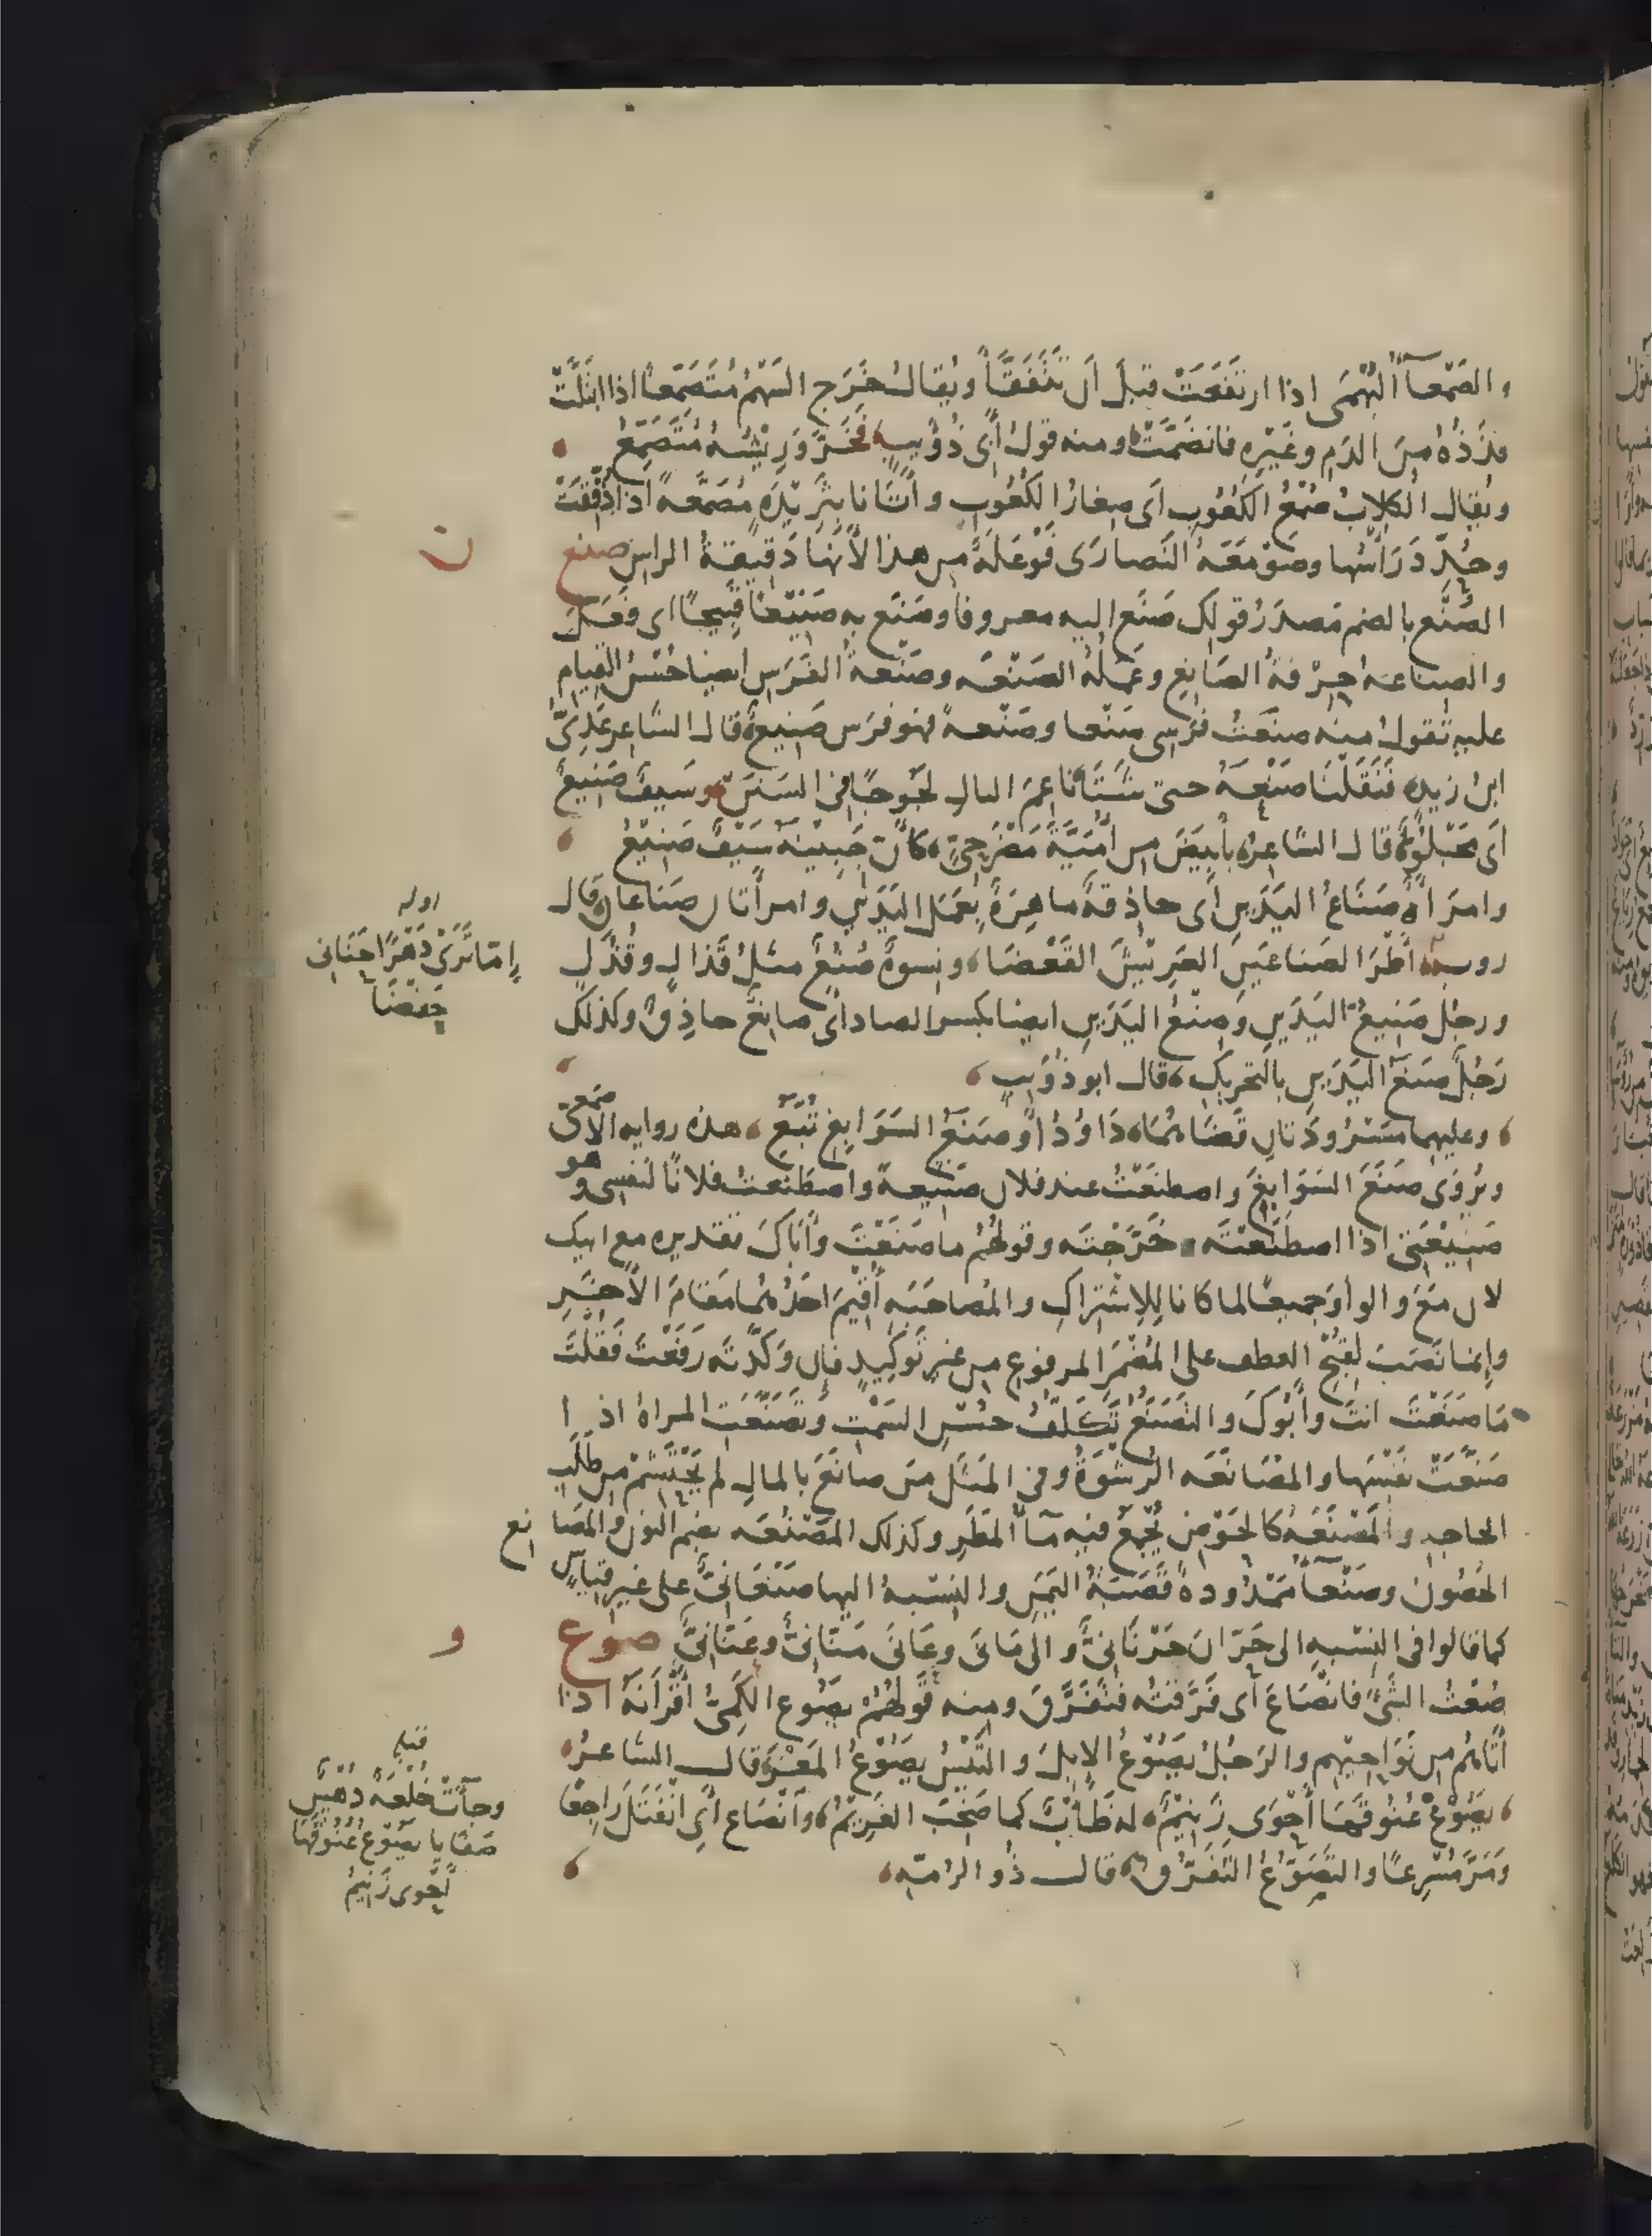 والصَّمْعَآءُ البُهْمَى اذا ارتَفَعَتْ قبلَ أن تَتَفَقَّأَ ويُقالُ خَرَج السَهْمُ مُتَصَمِّعاً اذا ابْتَلَّتْ
قُذَذُهُ مِنَ الدَمِ وغَيْرِهِ فانضَمَّتْ ومنه قولُ أبى ذُؤَيبٍ فَخَرَّ وَرِيْشُهُ مُتَصَمِّعُ
ويُقال الكِلابُ صُمْعُ الكُعُوبِ اى صِغارُ الكُعُوبِ وأَتَانا بثَرِيْدَةٍ مُصَمَّعةٍ اذا دُقِّقَتْ
وحُدِّدَ رَأْسُها وصَوْمَعَةُ النَصارَى فَوْعَلَةٌ من هذا لأَنَها دَقيقةُ الراس صنع
الصُنْع بالضم مَصدَرُ قولك صَنَع اليه معروفا وصَنَع به صَنيْعًا قَبِيحًا اى فَعَل
والصِناعة حِرْفةُ الصَانِع وعَمَلُهُ الصَنْعَة وصَنْعةُ الفَرَسِ ايضا حُسْنُ القِيامِ
عليهِ تَقولُ منه صنَعْتُ فَرَسى صَنْعا وصَنْعةً فهو فرَس صَنِيعٌ قال الشاعر عَدِىّ
ابن زيد فَنَقَلْنَا صَنْعَهُ حتى شَتَا نَاعِمَ البالِ لَجُوجًا فى السَنَنْ وسَيفٌ صَنِيعٌ
أَى مَجْلُوٌّ قال الشاعر بأَبيَضَ من أُمَيَّةَ مَضْرَحِىٍّ كأنّ جَبِيْنَهُ سَيْفٌ صَنِيْعُ
وامرَأةٌ صَنَاعُ اليَدَينِ أى حاذِقةٌ ماهِرَةٌ بِعَمَل اليَدَيْنِ وامرأتان صَناعان قال
روبة أَطْرَ الصَناعَيْنِ العَرِيْشَ القَعْضَا ونِسوةٌ صُنُعٌ مثلُ قَذالٍ وقُذُلٍ
ورجُل صَنيعُ اليَدَينِ وصِنْعُ اليَدَينِ ايضا بكسر الصاد أى صانِعٌ حاذِقٌ وكذلك
رَجُلٌ صَنَعُ اليَدَينِ بالتحريكِ قال ابو ذُؤَيبٍ
وعليهما مَسْرُودَتانِ قَضَاهُمَا دَاوُدُ أو صَنَعُ السَوَابِغِ تُبَّعُ هذه رواية الأصمعى
ويُرْوَى صَنَعَ السَوَابِغَ واصطنَعْتُ عند فلان صَنيعةً واصْطَنَعتُ فلانًا لنفسى وهو
صَنِيْعَتى اذا اصطَنَعْتَه وخَرَّجْتَه وقولهُم ما صَنَعْتَ وأَباكَ تقديره مع ابيك
لان مَعَ والواو جميعًا لما كانا لِلاِشْتِراكِ والمُصاحَبَةِ أُقِيْمَ احَدُهُما مَقَامَ الآخَرِ
وإنما نَصَبَ لقُبْحِ العطف على المُضْمَر المرفوع من غير تَوكِيدٍ فان وَكَّدْتَه رَفَعْتَ فَقُلْتَ
مَا صنَعْتَ انتَ وأَبُوكَ والتَصَنُّعُ تَكَلُّفُ حسْنِ السَمْتِ وتَصَنَّعَتِ المراةُ اذا
صَنَعَتْ نَفْسَها والمُصَانَعَه الرِشْوَةُ وفى المَثَل مَن صانَعَ بالمالِ لم يَحْتَشِمْ من طَلَبِ
الحاجة والمَصْنَعَةُ كالحَوْضِ يُجْمَعُ فيه مآءُ المَطَرِ وكذلك المَصْنُعَة بضم النون والمَصَانع
الحُصُونُ وصَنْعآءُ مَمْدُودةً قَصَبَةُ اليَمَنِ والنِسْبةُ اليها صَنْعَانِىٌّ على غير قياسٍ
كما قالوا فى النِسْبةِ الى حَرّانَ حَرْنَانِىٌّ والى مَانَى وعَانَى مَنّانِىٌّ وعَنّانِىٌّ صوع
صُعْتُ الشَىْءَ فانصَاعَ أى فَرَّقتُه فتَفَرَّقَ ومنه قَولهُمْ يَصُوع الكَمِىُّ أَقْرَانَهُ اذا
أَتَاهُم من نَوَاحِيْهِم والرَجُلُ يَصُوْعُ الإبِلَ والتَيْسُ يَصُوْعُ المَعْزَ قال الشاعرُ
يَصُوْعُ عُنُوقَها أَحْوَى زَنِيْمٌ له ظَأْبٌ كما صَخِبَ الغَرِيْمُ وانْصَاع أَىِ انْفَتَلَ رَاجِعًا
وَمَرَّ مُسْرِعًا والتَصَوُّعُ التَفَرُّق قال ذُو الرُمّةِ
ن
اوله
إمّا تَرَىْ دَهْرًا حَنَانى
حَفْضَا
و
قبله
وجآءَتْ خُلْعَةٌ دُهْسٌ
صَفَايا يَصُوْعُ عُنُوقَها
أَحْوى زَنِيمُ